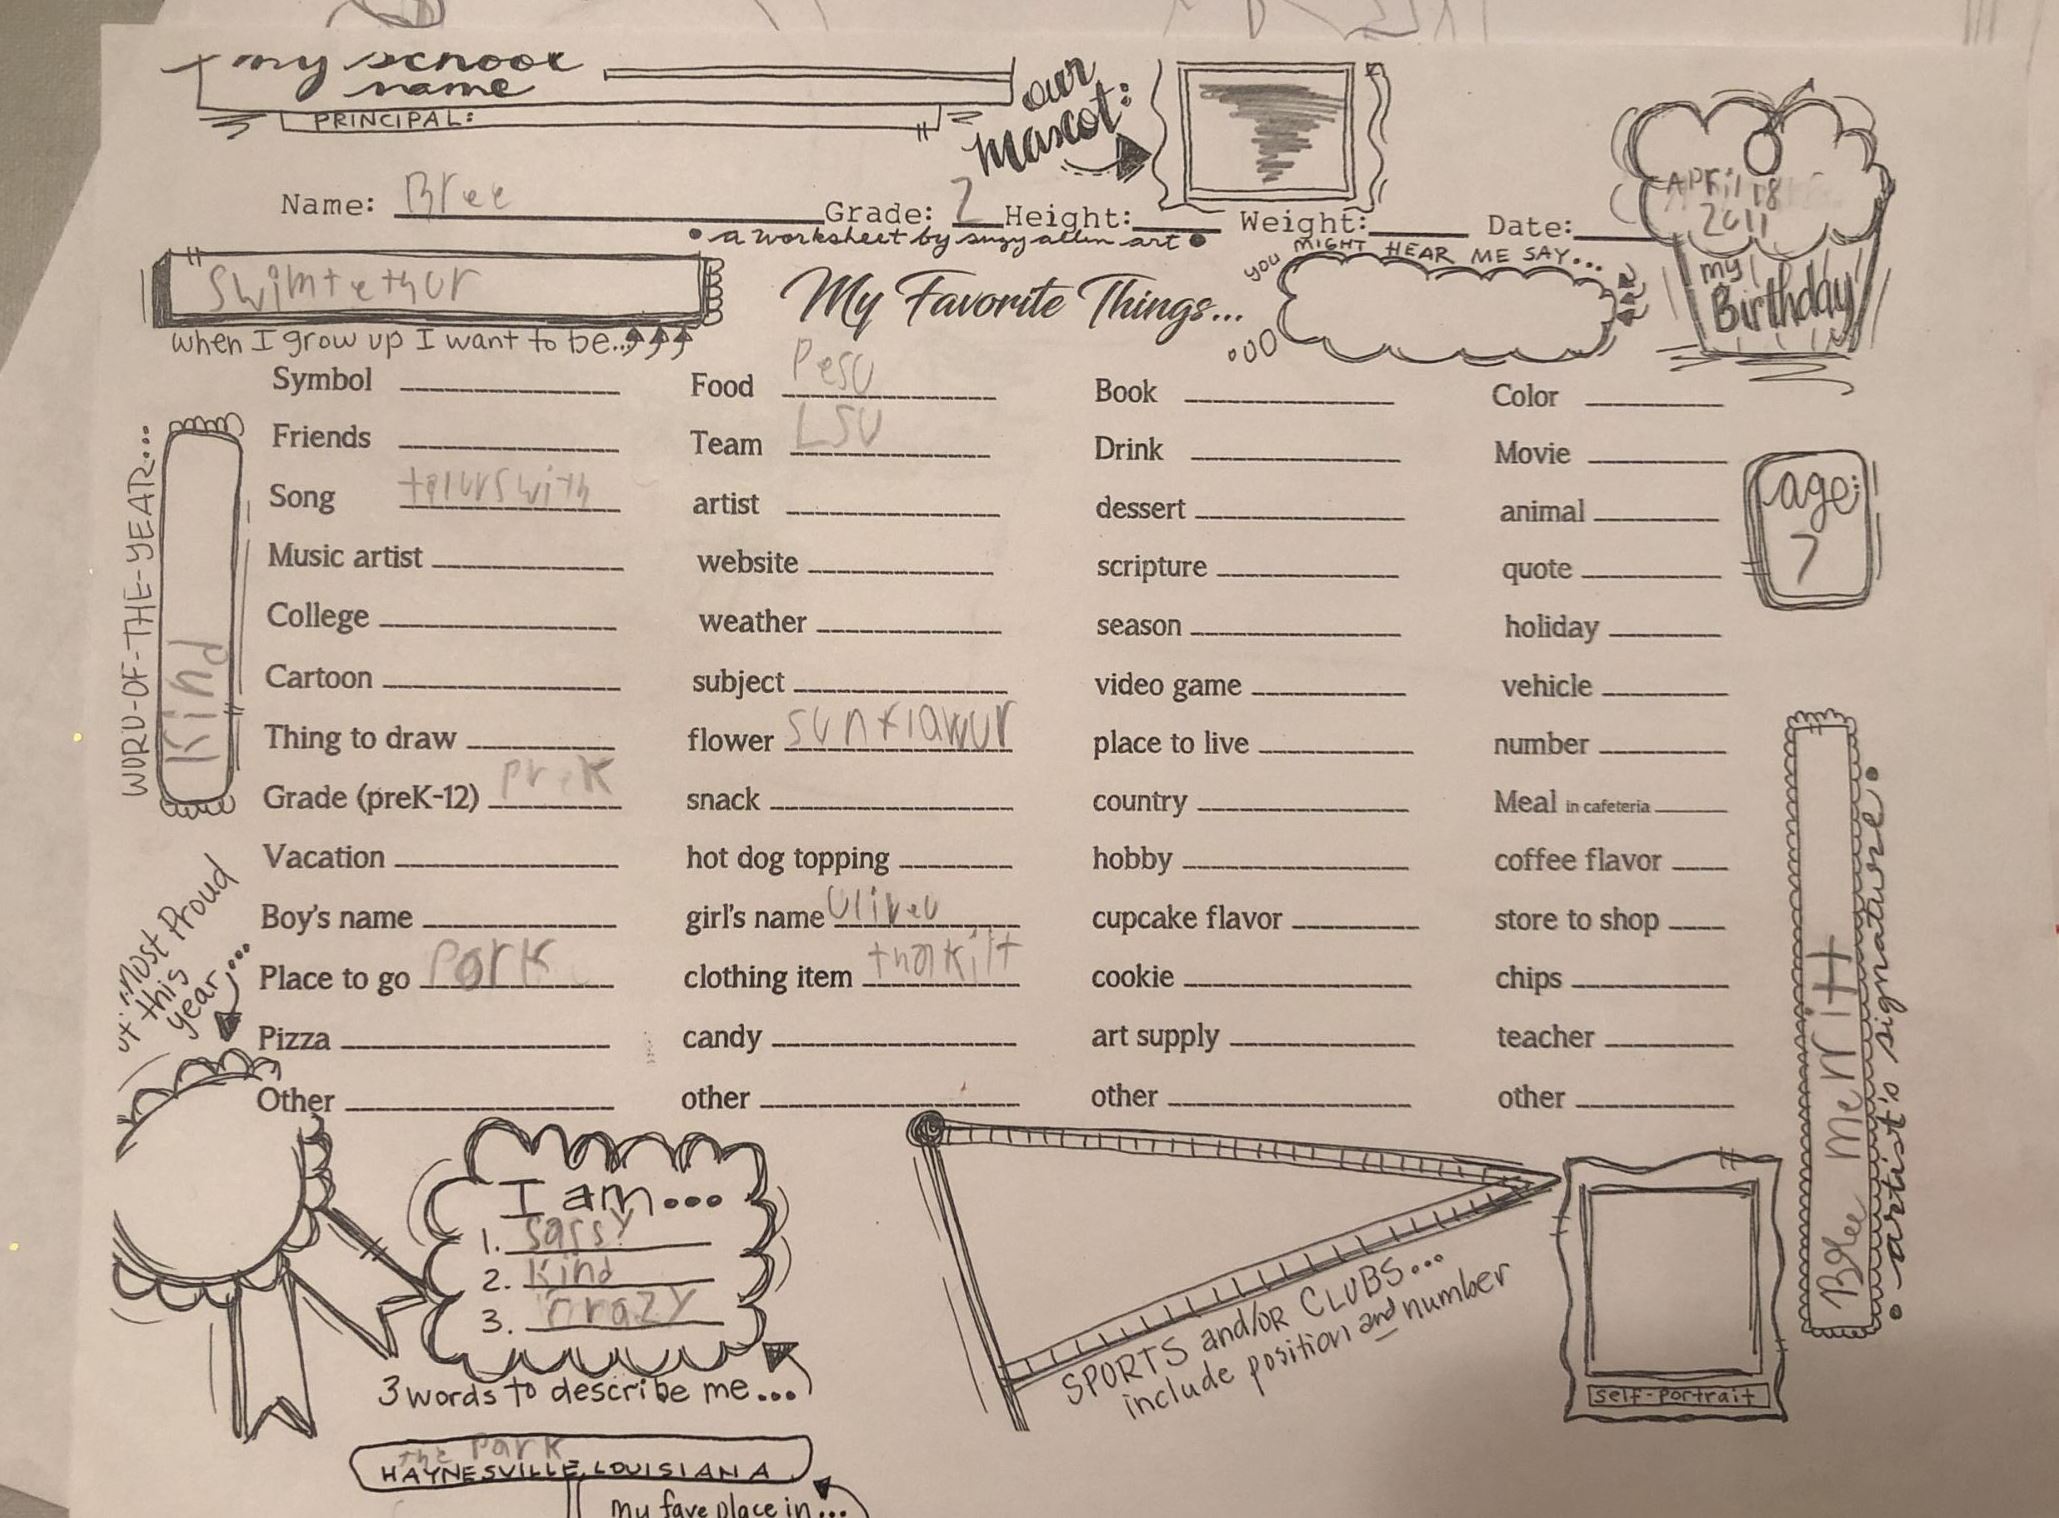 my school
name
PRINCIPAL:
our
mascot:
Name: Bree Grade: 2 Height: Weight: Date:
• a worksheet by suzy allen art •
APRil 18
2011
my
Birthday
swimtethur
when I grow up I want to be...
My Favorite Things...
you MIGHT HEAR ME SAY...
Symbol
Food Pesu
Book
Color
Friends
Team LSU
Drink
Movie
Song telurswith
artist
dessert
animal
Music artist
website
scripture
quote
College
weather
season
holiday
Cartoon
subject
video game
vehicle
Thing to draw
flower sunflawur
place to live
number
Grade (preK-12) prek
snack
country
Meal in cafeteria
Vacation
hot dog topping
hobby
coffee flavor
Boy's name
girl's name Oliveu
cupcake flavor
store to shop
Place to go Park
clothing item
cookie
chips
Pizza
candy
art supply
teacher
Other
other
other
other
WORD-OF-THE-YEAR...
Kind
age:
7
Most Proud
this
year...
Bree Merritt
• artist's signature •
I am...
1. Sassy
2. Kind
3. crazy
3 words to describe me...
SPORTS and/or CLUBS...
include position and number
self-portrait
the Park
HAYNESVILLE, LOUISIANA
my fave place in...